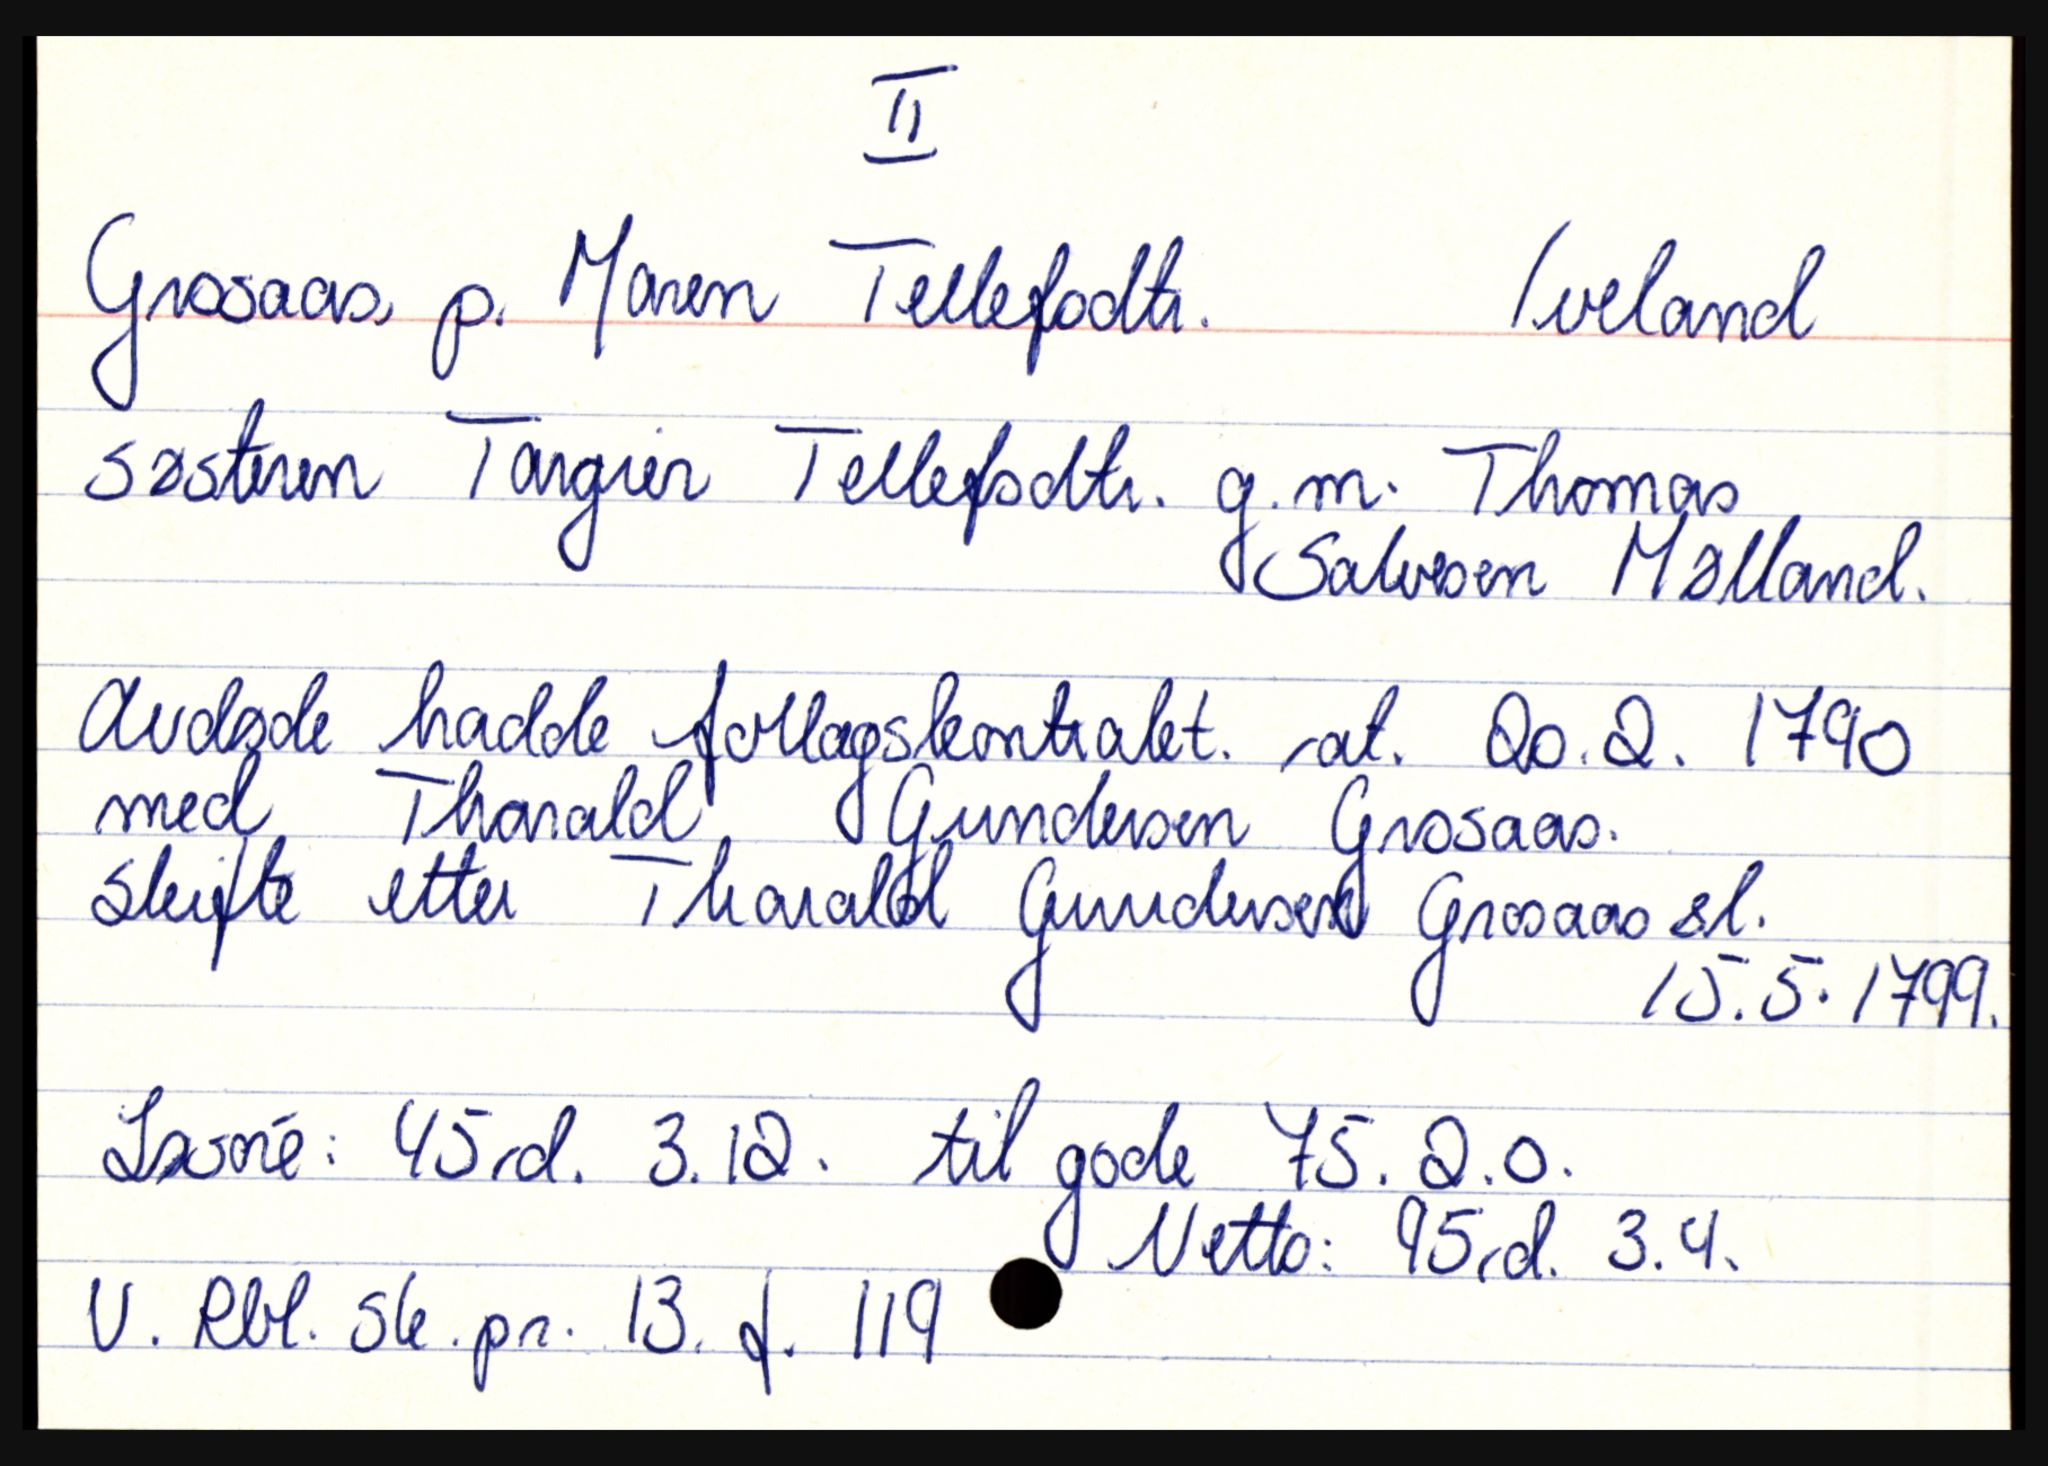 II
Grosaas, p. Maren Tellefsdtr. Iveland
søsteren Targier Tellefsdtr. g.m. Thomas
Salvesen Mølland.
Avdøde hadde follagskontrakt. rat. 20.2. 1790
med Tharald Gundersen Grosaas.
Skifte etter Tharald Gundersen Grosaas sl.
15.5.1799.
Løsøre: 45rd. 3.12. til gode 75.2.0.
Netto: 95rd. 3.4.
V. Rbl. Sk.pr. 13. f. 119